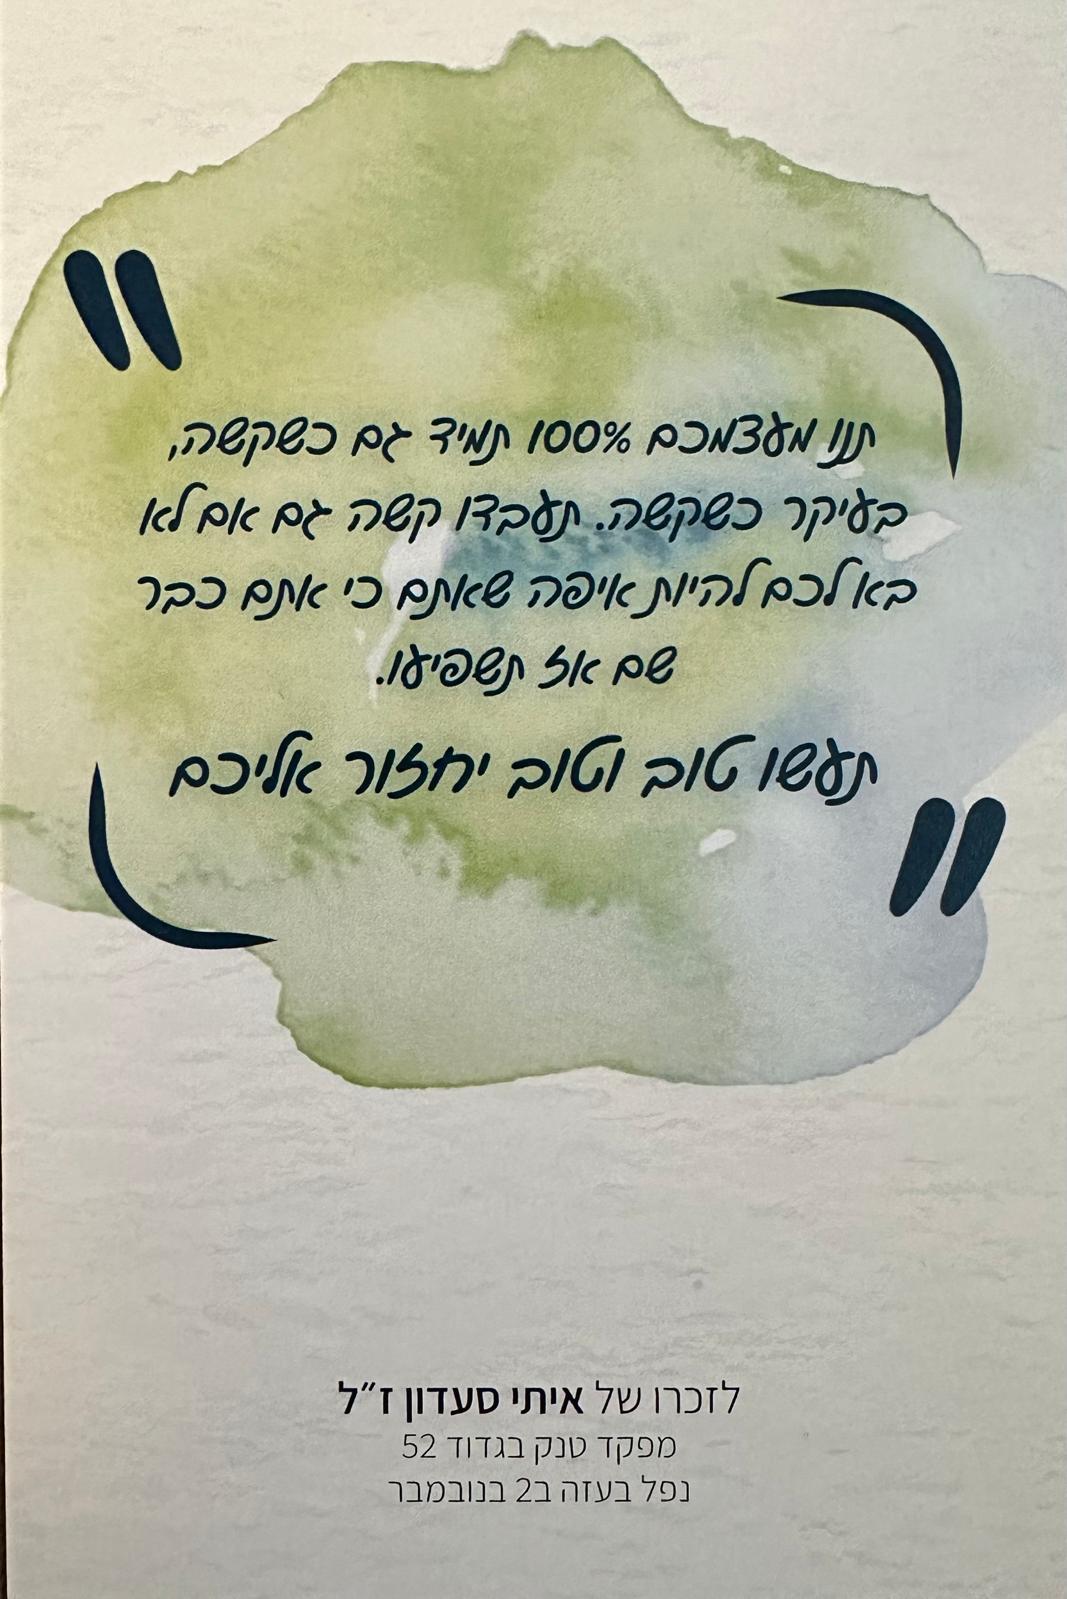 תנו מעצמכם 100% תמיד גם כשקשה,
בעיקר כשקשה. תעבדו קשה גם אם לא
בא לכם להיות איפה שאתם כי אתם כבר
שם אז תשפיעו.
תעשו טוב וטוב יחזור אליכם
לזכרו של איתי סעדון ז״ל
מפקד טנק בגדוד 52
נפל בעזה ב2 בנובמבר